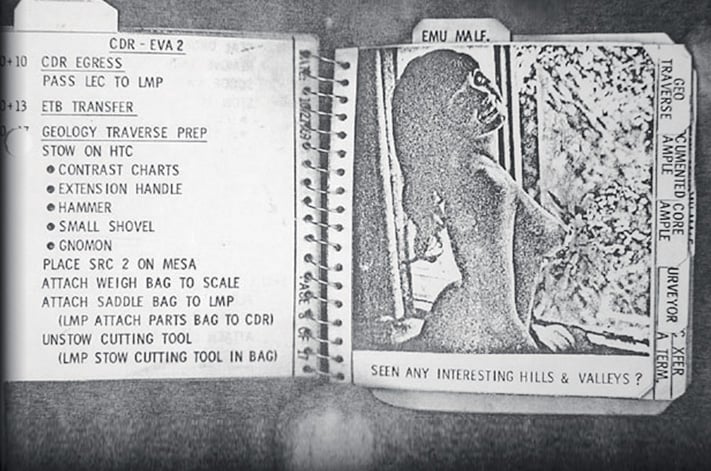 CDR - EVA 2
0+10 CDR EGRESS
PASS LEC TO LMP
0+13 ETB TRANSFER
GEOLOGY TRAVERSE PREP
STOW ON HTC
• CONTRAST CHARTS
• EXTENSION HANDLE
• HAMMER
• SMALL SHOVEL
• GNOMON
PLACE SRC 2 ON MESA
ATTACH WEIGH BAG TO SCALE
ATTACH SADDLE BAG TO LMP
(LMP ATTACH PARTS BAG TO CDR)
UNSTOW CUTTING TOOL
(LMP STOW CUTTING TOOL IN BAG)
EMU MALF.
SEEN ANY INTERESTING HILLS & VALLEYS ?
GEO
TRAVERSE
CUMENTED CORE
AMPLE AMPLE
URVEYOR XFER
A TERM.